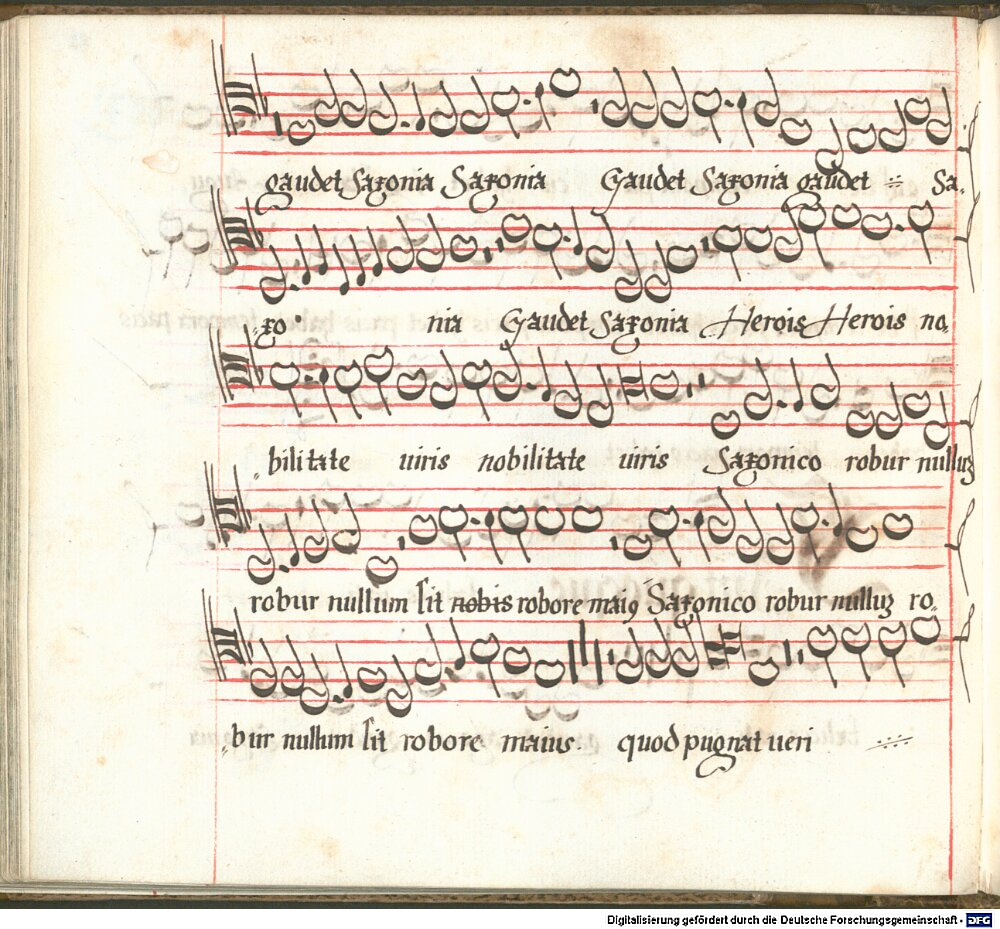 gaudet Saxonia Saxonia Gaudet Saxonia gaudet ·:· Sa-
-xo nia Gaudet Saxonia Herois Herois no-
-bilitate uiris nobilitate uiris Saxonico robur nulluʒ
robur nullum sit nobis robore maiꝰ Saxonico robur nulluʒ ro-
-bur nullum sit robore maius quod pugnat ueri ·:·:·
Digitalisierung gefördert durch die Deutsche Forschungsgemeinschaft - DFG